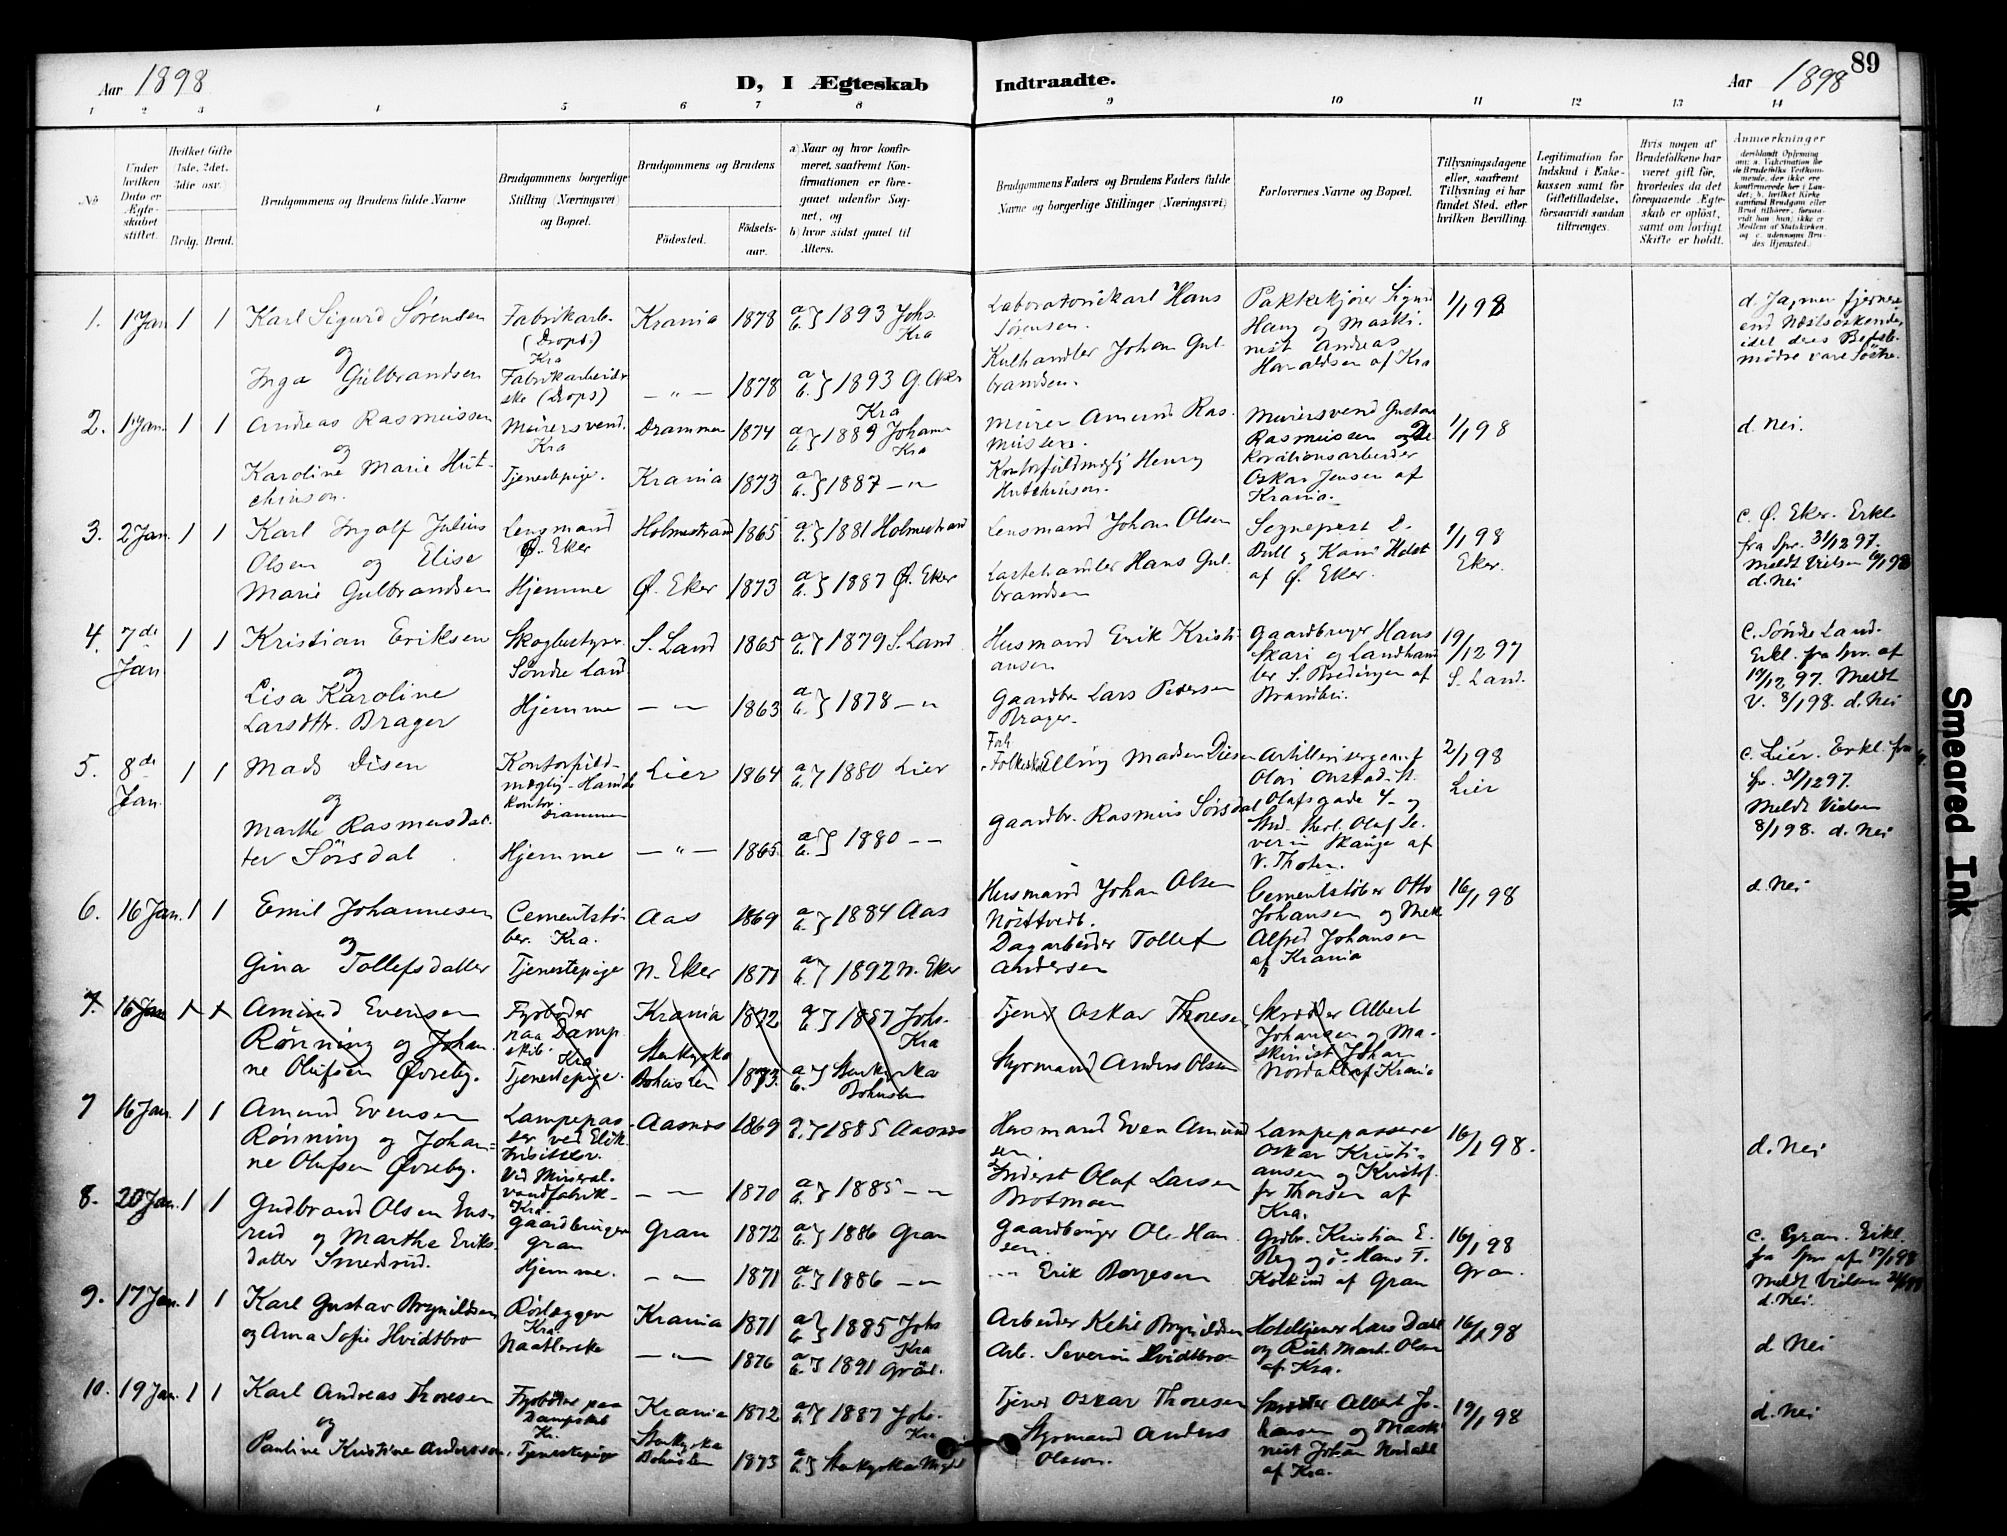 89
Aar 1898
D, I Ægteskab Indtraadte.
Aar 1898
1 2 3 4 5 6 7 8 9 10 11 12 13 14
№
Under hvilken Dato er Ægteskabet stiftet.
Hvilket Gifte (1ste, 2det, 3die osv.)
Brdg. Brud.
Brudgommens og Brudens fulde Navne
Brudgommens borgerlige Stilling (Næringsvei) og Bopæl.
Brudgommens og Brudens
Födested.
Födselsaar.
a) Naar og hvor konfirmeret, saafremt Konfirmationen er foregaaet udenfor Sognet, og
b) hvor sidst gaaet til Alters.
Brudgommens Faders og Brudens Faders fulde Navne og borgerlige Stillinger (Næringsvei)
Forlovernes Navne og Bopæl.
Tillysningsdagene eller, saafremt Tillysning ei har fundet Sted, efter hvilken Bevilling.
Legitimation for Indskud i Enkekassen samt for Giftetilladelse, forsaavidt saadan tiltrænges.
Hvis nogen af Brudefolkene har været gift før, hvorledes da det foregaaende Ægteskab er opløst, samt om lovligt Skifte er holdt.
Anmærkninger
1. 1 Jan 1 1
Karl Sigurd Sørensen
og
Inga Gulbrandsen
Fabrikarb. (Drops.) Kra
Fabrikarbeiderske (Drops)
Krania 1878 a b } 1893 Johs. Kra
— " — 1878 a b } 1893 G. Aker Kra
Laboratoriekarl Hans Sørensen.
Kulhandler Johan Gulbrandsen.
Pakkekjører Sigurd Haug og Maskinist Andreas Haraldsen af Kra
1/1 98
2. 1 Jan. 1 1
Andreas Rasmussen
og
Karoline Marie Hutchinson.
Murersvend. Kra
Tjenestepige.
Drammen 1874 a b } 1889 Johann Kra
Krania 1873 a b } 1887 — " —
Murer Amund Rasmussen.
Kontorfuldmægtig Henry Hutchinson.
Murersvend Gustav Rasmussen og Dekorationsarbeider Oskar Jensen af Krania.
1/1 98
d. Nei.
3. 2 Jan. 1 1
Karl Ingolf Julius
Olsen og Elise
Marie Gulbrandsen
Lensmand Ø. Eker
Hjemme
Holmestrand 1865 a b } 1881 Holmestrand
Ø. Eker 1873 a b } 1887 Ø. Eker
Lensmand Johan Olsen
Lastehandler Hans Gulbrandsen
af Ø. Eker.
1/1 98 Eker.
c. Ø. Eker. Erkl. fra Spr. 31/12 97.
Meldt Vielsen
d. Nei
4. 7de Jan 1 1
Kristian Eriksen
og
Lisa Karoline
Larsdtr. Brager
Skogbestyrer Søndre Land
Hjemme
S. Land 1865 a b } 1879 S. Land
— " — 1863 a b } 1878 — " —
Husmand Erik Kristiansen
Gaardbr. Lars Pedersen Brager.
Gaardbruger Hans
19/12 97 S. Land.
C. Søndre Land.
Erkl. fra Spr. af 19/12 97. Meldt
V. 8/1 98. d. Nei
5. 8de Jan. 1 1
Mads Disen
og
Marthe Rasmusdatter Sørsdal
Kontorfuldmægtig - Handelskontor. Drammen
Hjemme
Lier 1864 a b } 1880 Lier
— " — 1865 a b } 1880 — —
Elling Madsen Disen
Gaardbr. Rasmus Sørsdal
Olafsgade 4 - og Stud. theol. Olaf Severin Skauge af V. Thoten.
2/1 98 Lier
c. Lier. Erkl. fra Spr. 31/12 97.
Meldt Vielsen
8/1 98. d. Nei
6. 16 Jan. 1 1
Emil Johannesen
og
Gina Tollefsdatter
Cementstøber. Kra.
Tjenestepige
Aas 1869 a b } 1884 Aas
N. Eker 1871 a b } 1892 N. Eker
Husmand Johan Olsen Nøstvedt.
Dagarbeider Tollef Andersen
Cementstøber Otto Johansen og Mek Alfred Johansen af Krania
16/1 98
d. Nei
7. 16 Jan 1 1
Amund Evensen
Rønning og Johanne Olufsen Øvreby.
Fyrbøder paa Dampskib. Kra
Tjenestepige.
Krania 1872 a b } 1887 Johs. Kra
Stenkyrka Bohuslen 1873. a b } Stenkyrka Bohuslen
Tjener Oskar Thoresen
Styrmand Anders Olsen
Skrædder Albert Johansen og Maskinist Johan Nordahl af Krania
7 16 Jan. 1 1
Amund Evensen
Rønning og Johanne Olufsen Øvreby.
Lampepasser ved Elektricitetsv.
Ved Mineralvandfabrik - Kra.
Aasnes 1869 a b } 1885 Aasnes
— " — 1870 a b } 1885 — " —
Husmand Even Amundsen.
Inderst Oluf Larsen Brotmoen
Lampepassere Oskar Kristiansen og Kristoffer Thorsen af Kra.
16/1 98.
d. Nei
8. 20 Jan. 1 1
Gudbrand Olsen
og Marthe Eriksdatter Smedsrud.
Gaardbruger Gran
Hjemme.
Gran 1872 a b } 1886 Gran
— " — 1871 a b } 1886 — " —
Gaardbruger Ole Hansen.
Erik Borgesen
Grdbr. Kristian E. Berg og
af Gran
16/1 98 Gran.
c. Gran. Erkl. fra Spr af 17/1 98
Meldt Vielsen
d. Nei.
9. 17 Jan. 1 1
Karl Gustav Brynildsen
og Anna Sofie Hvidtbro
Rørlægger Kra.
Naatlerske
Krania 1871 a b } 1885 Johs Kra
— " — 1876 a b } 1891 Grøl.
Arbeider Ketil Brynildsen
Arb. Severin Hvidtbro
Hoteltjener Lars Dahl og Mart. Olsen af Kra.
16/1 98
d Nei
10. 19 Jan. 1 1
Karl Andreas Thoresen
og
Pauline Kristine Andersson.
Fyrbøder paa Dampskib Kr.
Tjenestepige
Krania 1872 a b } 1887 Johs. Kra
Stenkyrka Bohuslen 1873 a b } Stenkyrka
Tjener Oskar Thoresen
Styrmand Anders Olsson.
Skrædder Albert Johansen og Maskinist Johan Nordahl af Kra.
19/1 98
d. Nei
Smeared Ink